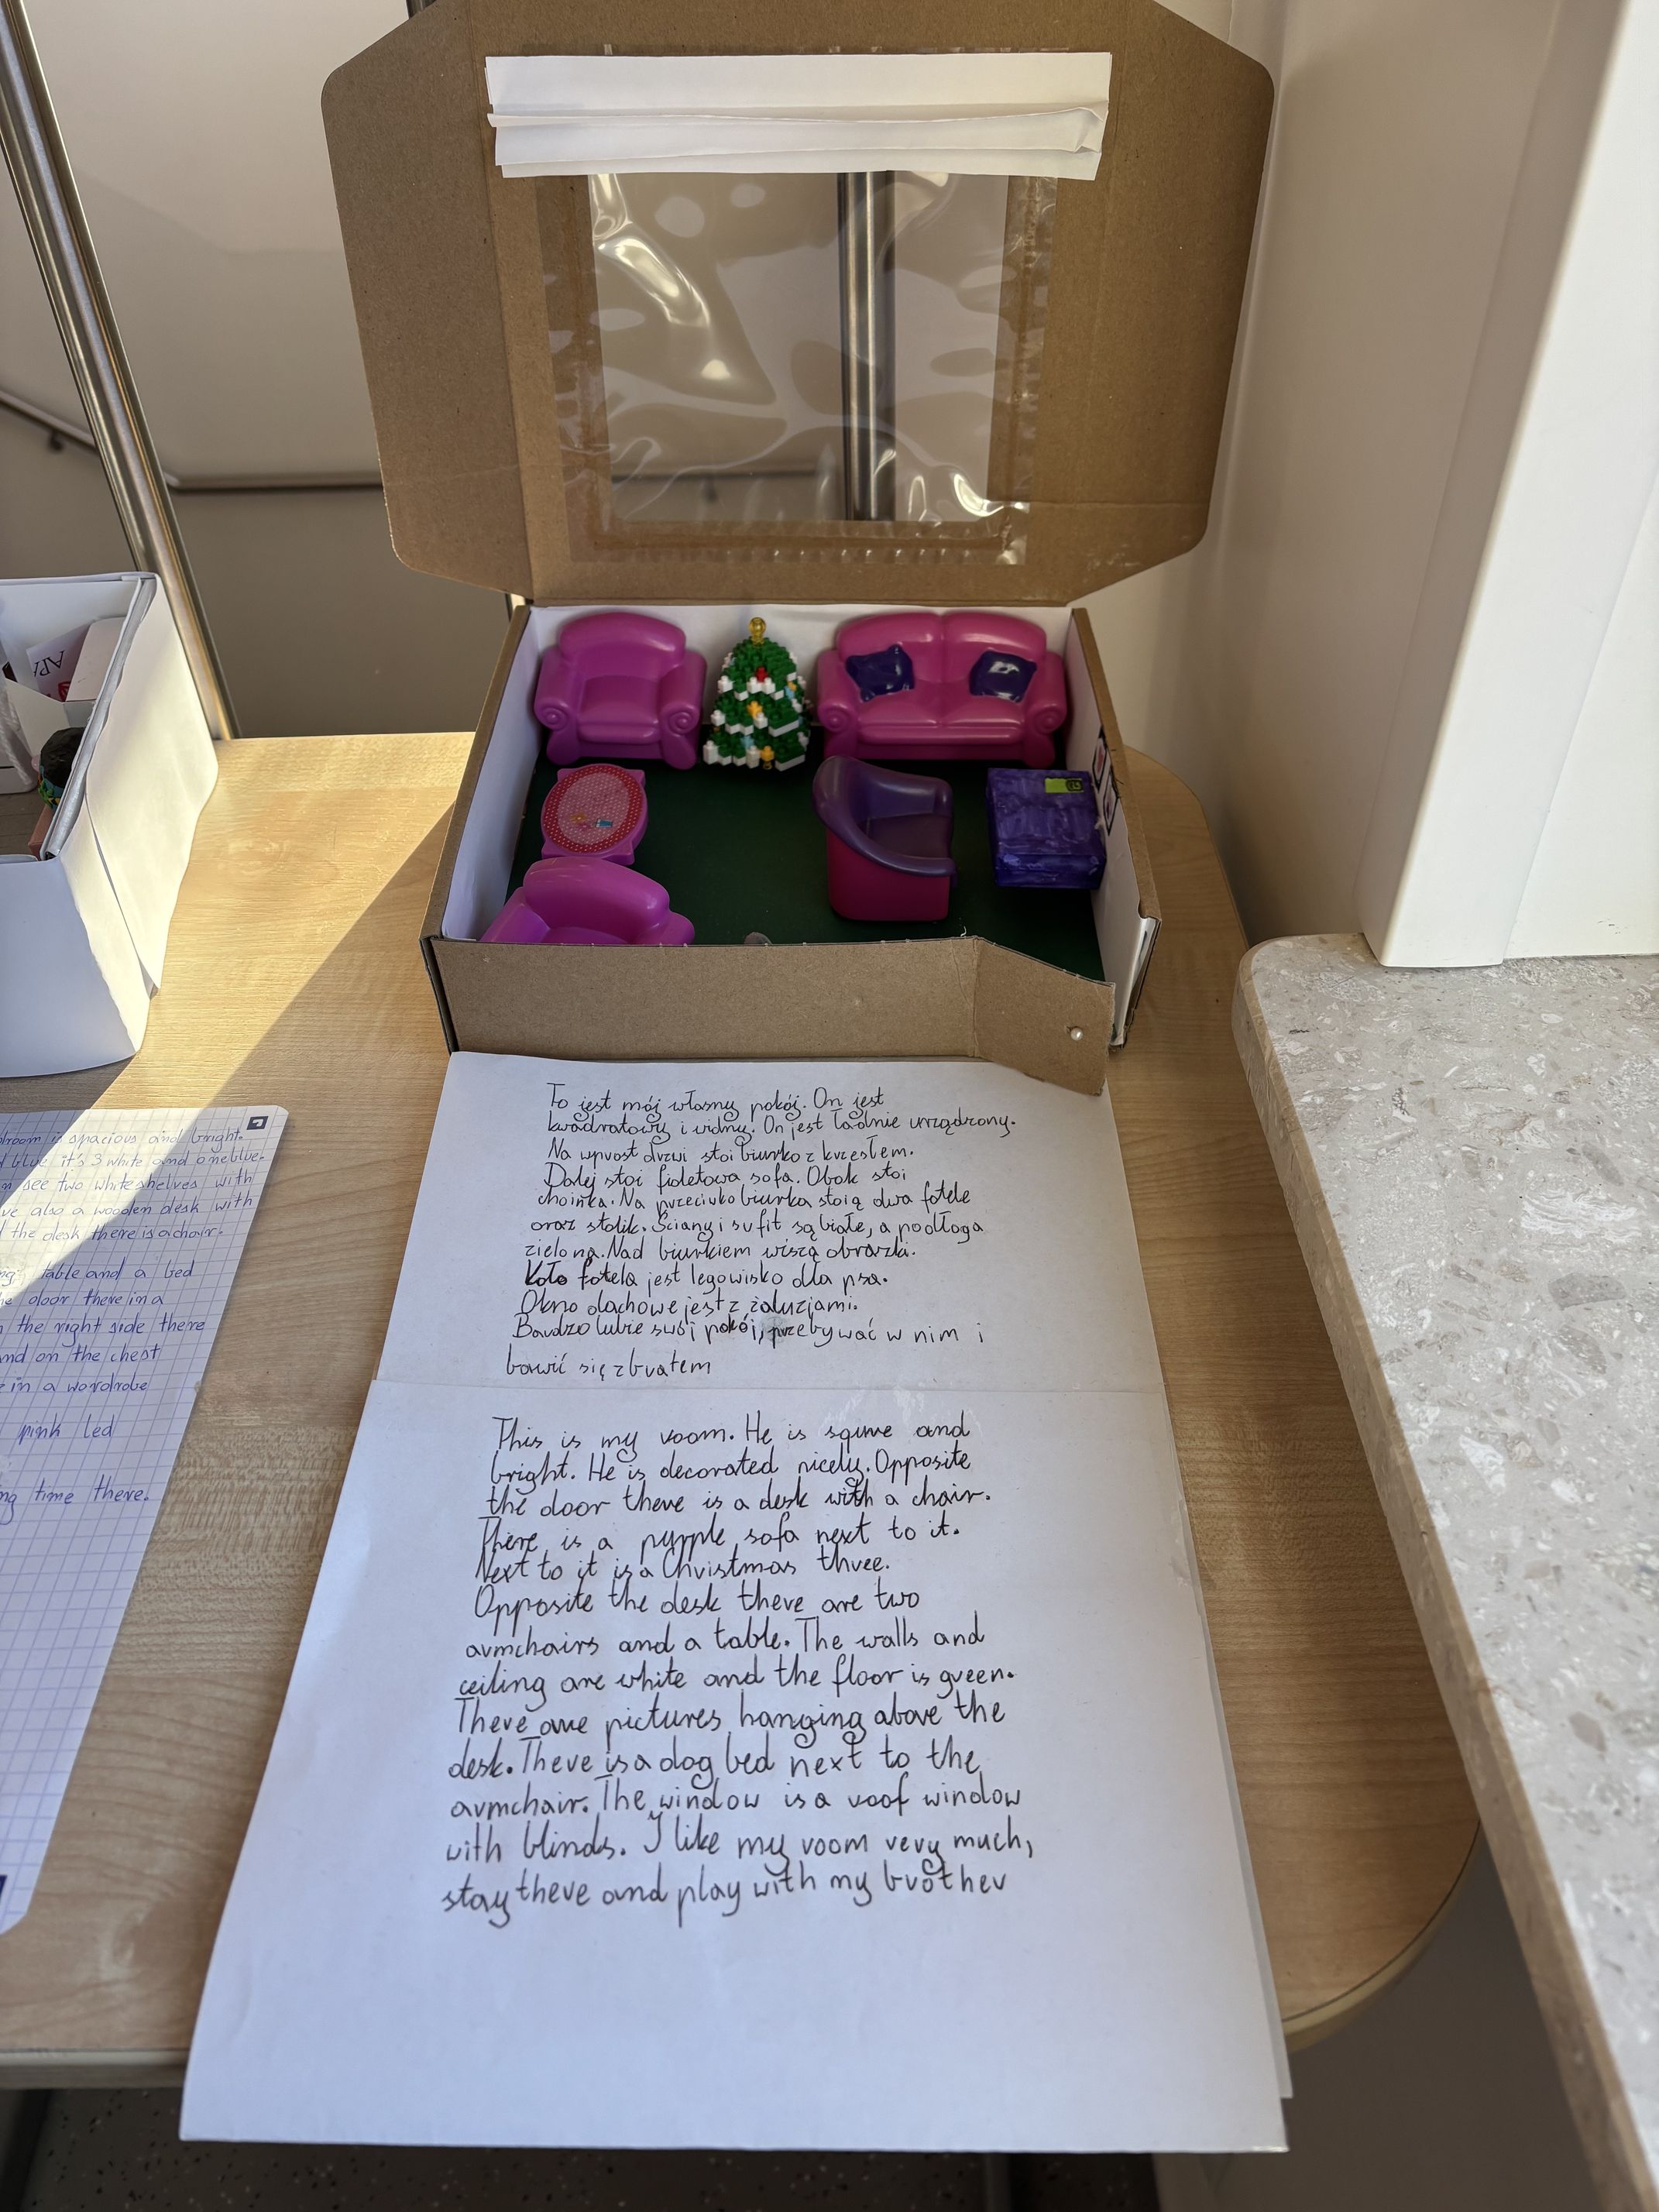 To jest mój własny pokój. On jest
kwadratowy i widny. On jest ładnie urządzony.
Na wprost drzwi stoi biurko z krzesłem.
Dalej stoi fioletowa sofa. Obok stoi
choinka. Na przeciwko biurka stoją dwa fotele
oraz stolik. Ściany i sufit są białe, a podłoga
zielona. Nad biurkiem wiszą obrazki.
Koło fotela jest legowisko dla psa.
Okno dachowe jest z żaluzjami.
Bardzo lubię swój pokój, przebywać w nim i
bawić się z bratem
This is my room. He is squre and
bright. He is decorated nicely. Opposite
the door there is a desk with a chair.
There is a purple sofa next to it.
Next to it is a Christmas three.
Opposite the desk there are two
armchairs and a table. The walls and
ceiling are white and the floor is green.
There are pictures hanging above the
desk. There is a dog bed next to the
armchair. The window is a roof window
with blinds. I like my room very much,
stay there and play with my brother
is spacious and bright.
blue it's 3 white and one blue.
see two white shelves with
also a wooden desk with
the desk there is a chair.
table and a bed
door there in a
the right side there
and on the chest
in a wordrobe
pink led
time there.